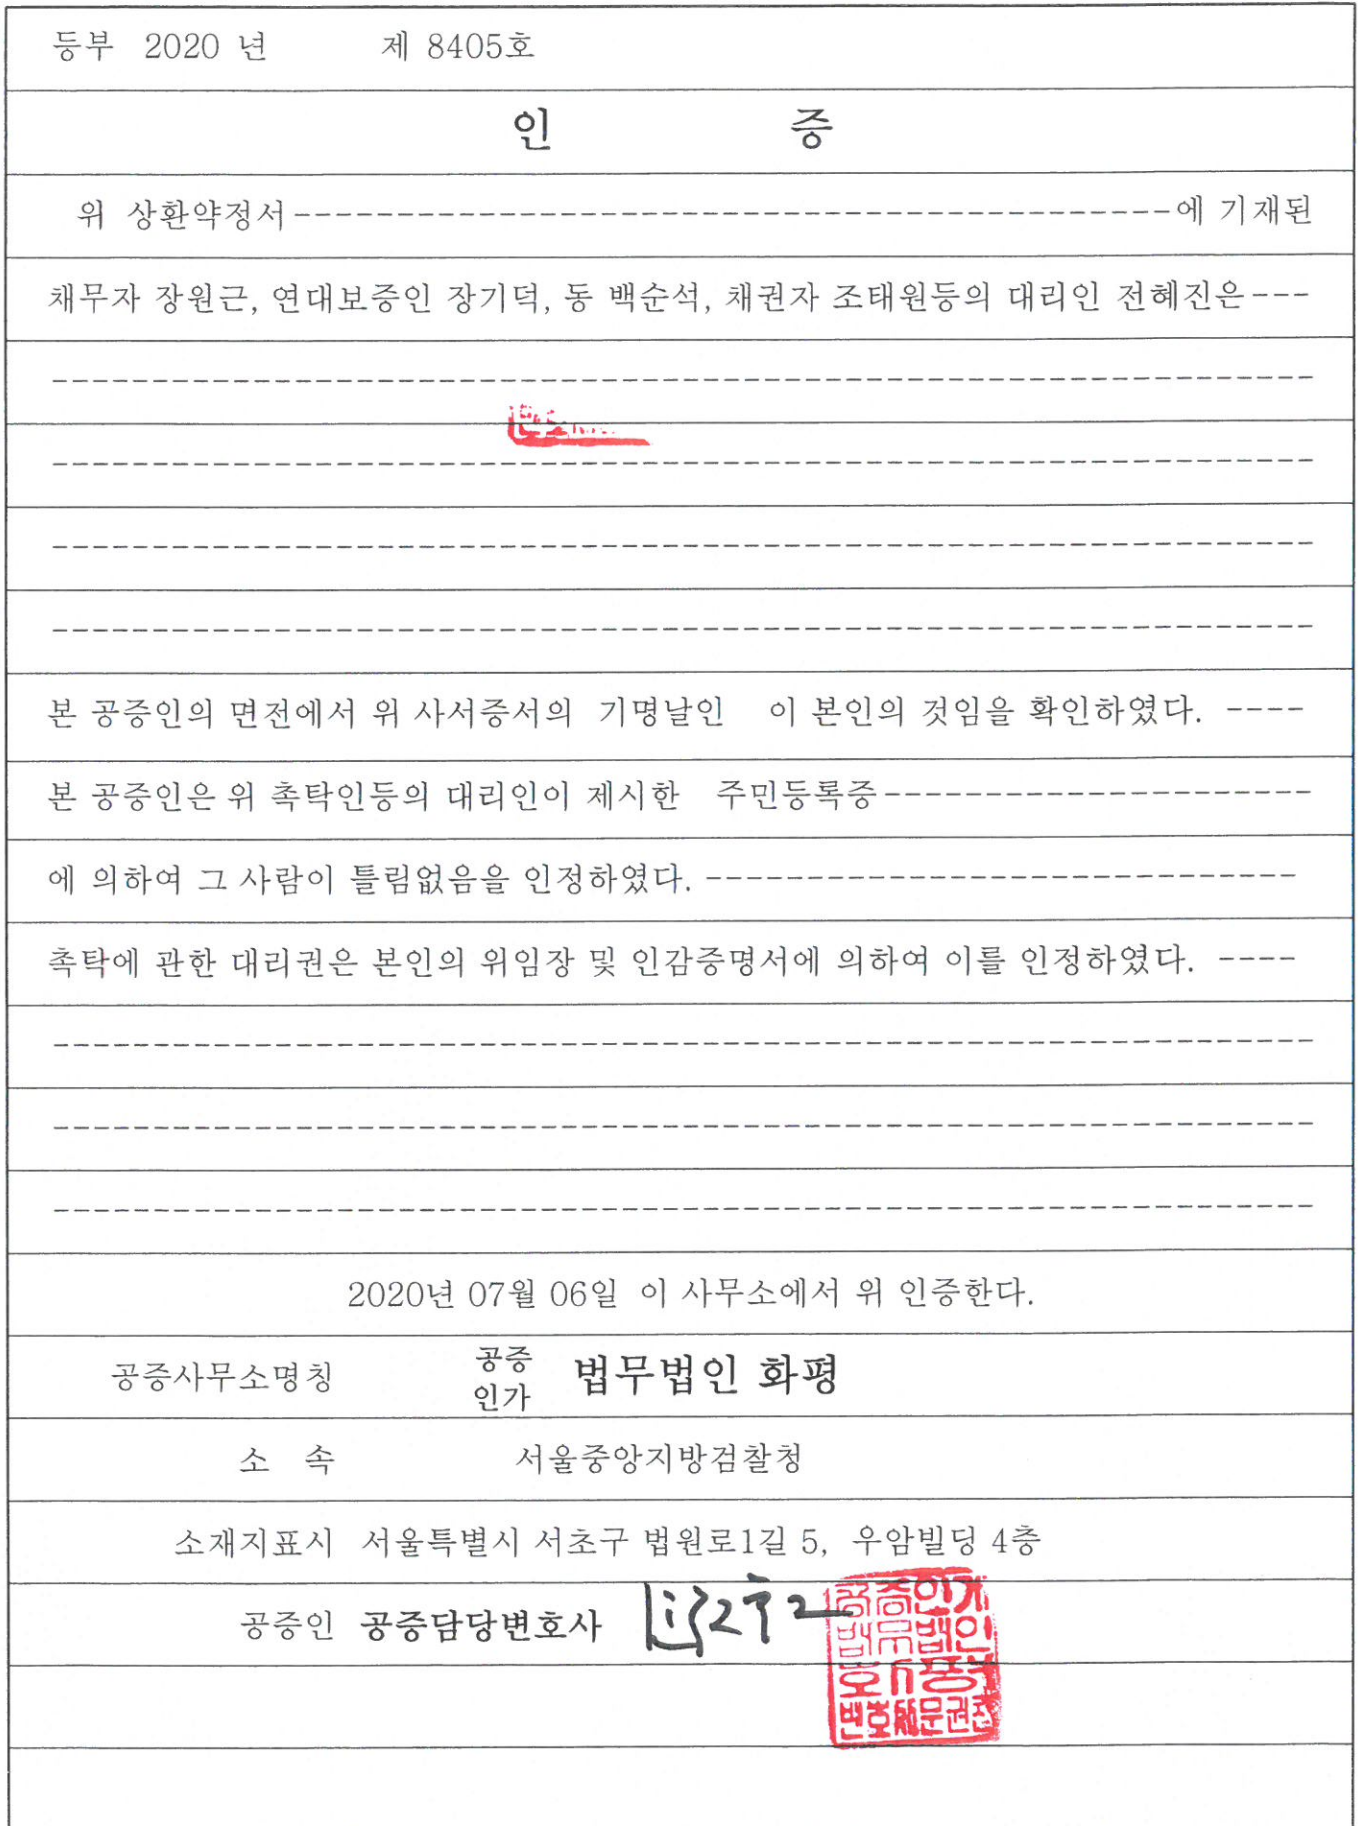 등부 2020 년 제 8405호
인 증
위 상환약정서----------------------------------------에 기재된
채무자 장원근, 연대보증인 장기덕, 동 백순석, 채권자 조태원등의 대리인 전혜진은---
본 공증인의 면전에서 위 사서증서의 기명날인 이 본인의 것임을 확인하였다. ----
본 공증인은 위 촉탁인등의 대리인이 제시한 주민등록증---------------------
에 의하여 그 사람이 틀림없음을 인정하였다. -----------------------------
촉탁에 관한 대리권은 본인의 위임장 및 인감증명서에 의하여 이를 인정하였다. ----
2020년 07월 06일 이 사무소에서 위 인증한다.
공증사무소명칭 공증인가 법무법인 화평
소 속 서울중앙지방검찰청
소재지표시 서울특별시 서초구 법원로1길 5, 우암빌딩 4층
공증인 공증담당변호사